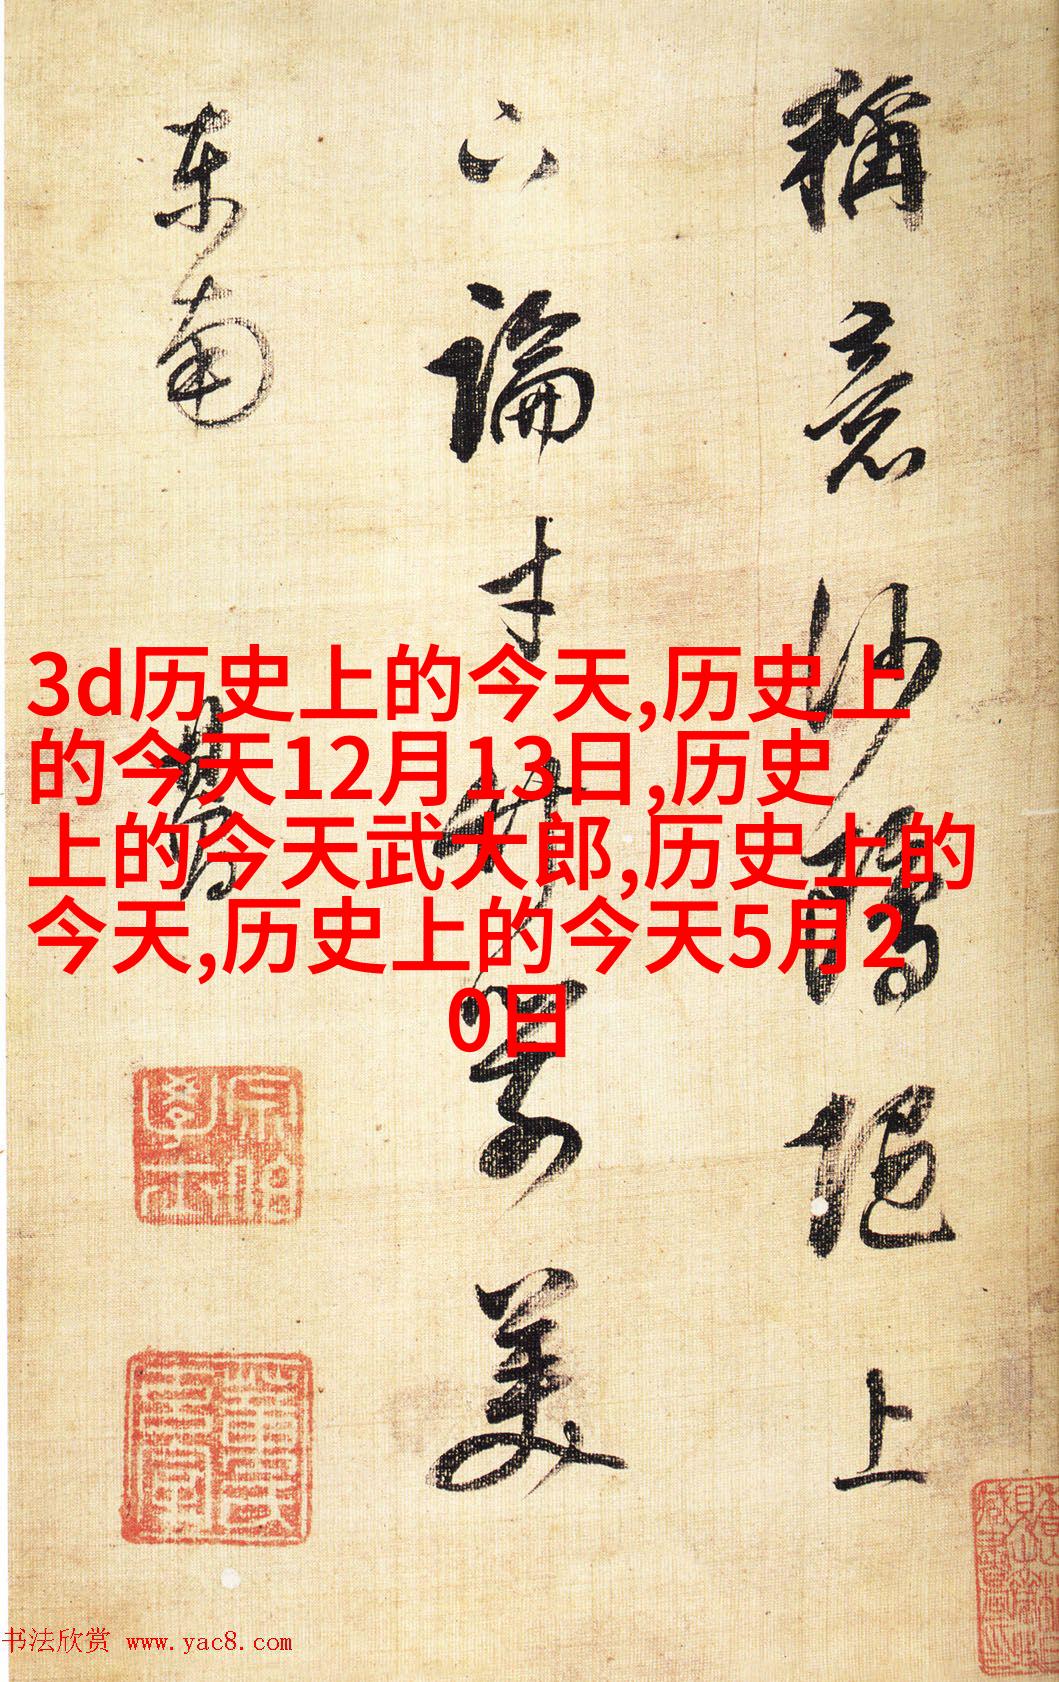 稱意沙上
論才竹箭美
東南
3d历史上的今天,历史上
的今天12月13日,历史
上的今天武大郎,历史上的
今天,历史上的今天5月2
0日
宗伯學士
董氏玄宰
书法欣赏 www.yac8.com